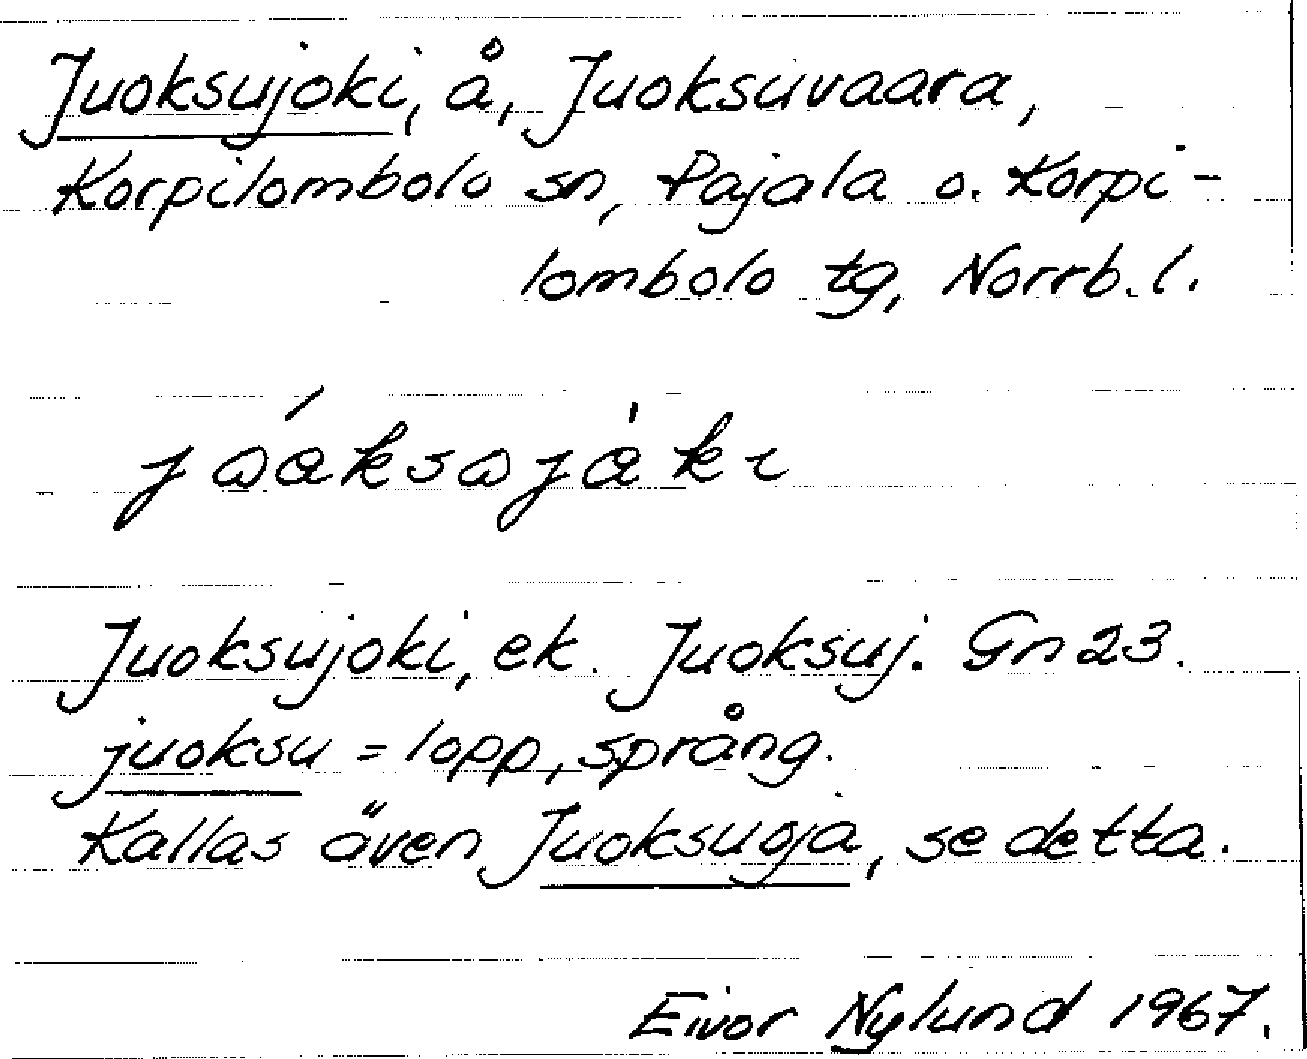 Juoksujoki, å, Juoksuvaara,
Korpilombolo sn, Pajala o. Korpi-
lombolo tg, Norrb. l.
Juoksujoki, ek. Juoksuj. Gn 23.
juoksu = lopp, språng.
Kallas även Juoksuoja, se detta.
Eivor Nylund 1967.